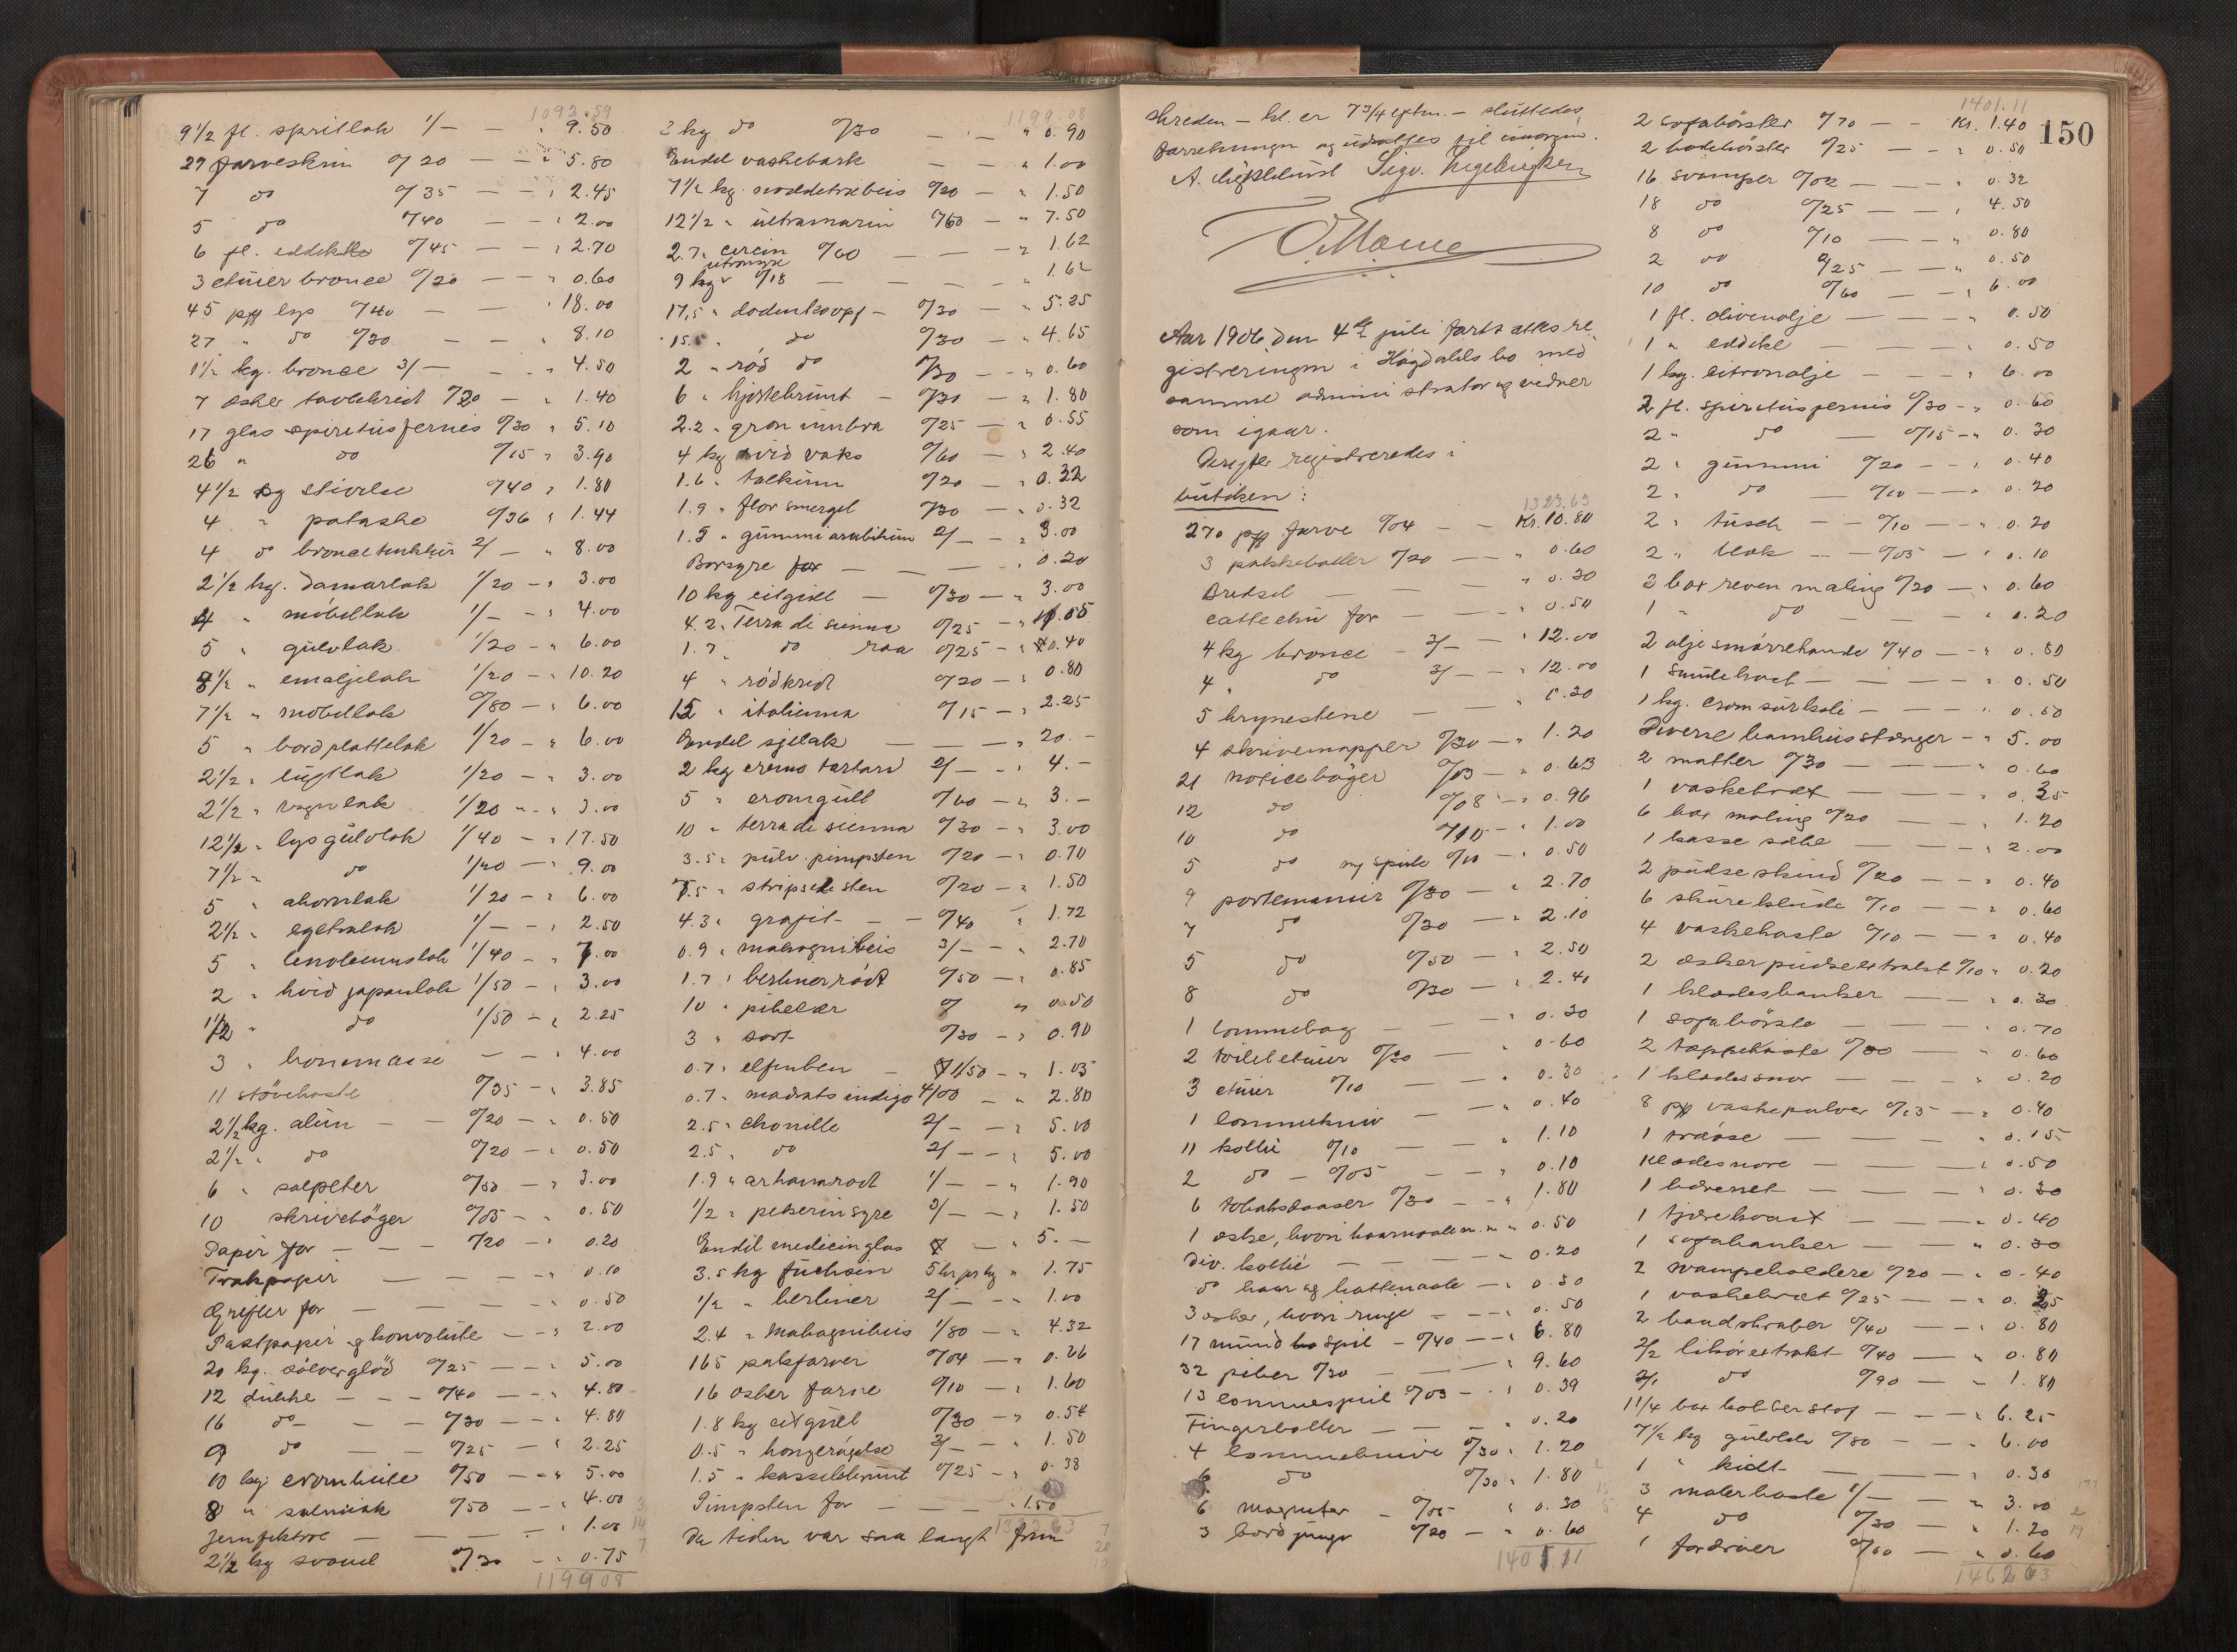 1092.59
9 1/2 fl. spritlak 1/— — " 9.50
29 farveskrin 0/20 — — " 5.80
7 do 0/35 — — " 2.45
5 do 0/40 — — " 2.00
6 fl. eddike 0/45 — — " 2.70
3 etuier bronce 0/20 — — " 0.60
45 pff lys 0/40 — — " 18.00
27 " do 0/30 — — " 8.10
1 1/2 kg. bronce 3/— — " 4.50
7 æsker tavlekrid 0/20 — " 1.40
17 glas spiritusfernis 0/30 " 5.10
26 " do 0/15 " 3.90
4 1/2 kg stivelse 0/40 " 1.80
4 " potaske 0/36 " 1.44
4 do broncetinktur 2/— " 8.00
2 1/2 kg. Damarlak 1/20 — " 3.00
4 " möbellak 1/— — " 4.00
5 " gulvlak 1/20 — " 6.00
8 1/2 " emaljelak 1/20 — " 10.20
7 1/2 " möbellak 0/80 — " 6.00
5 " bordplattelak 1/20 — " 6.00
2 1/2 " luftlak 1/20 — " 3.00
2 1/2 " vognlak 1/20 — " 3.00
12 1/2 " lys gulvlak 1/40 — " 17.50
7 1/2 " do 1/20 — " 9.00
5 " ahornlak 1/20 — " 6.00
2 1/2 " egetrælak 1/— — " 2.50
5 " linoleumslak 1/40 — " 7.00
2 " hvid japanlak 1/50 — " 3.00
1 1/2 " do 1/50 — " 2.25
3 " bonemasse — — " 4.00
11 stövekoste 0/35 — " 3.85
2 1/2 kg. alun — — 0/20 — " 0.50
2 1/2 " do 0/20 — " 0.50
6 " salpeter 0/50 — " 3.00
10 skriveböger 0/05 — " 0.50
Papir for — — — 0/20 — " 0.20
Trækpapir — — — — " 0.10
Grifler for — — — — " 0.50
Postpapir og konvolute — — " 2.00
20 kg. sölverglöd 0/25 — — " 5.00
12 dukke — — — 0/40 — — " 4.80
16 do — — — 0/30 — — " 4.80
9 do — — 0/25 — — " 2.25
10 kg cromhvite 0/50 — — " 5.00
8 " salmiak 0/50 — — " 4.00
— — — — " 1.00
2 1/2 kg svovel 0/30 — " 0.75
1199 08
1199.08
3 kg do 0/30 — — " 0.90
Endel vaskebark — — " 1.00
7 1/2 kg. nøddetræbeis 0/20 — " 1.50
12 1/2 " ultramarin 0/60 — " 7.50
2.7 " 0/60 — — " 1.62
citronsyre
9 kg " 0/18 — — — " 1.62
17,5 " dodenkopf — 0/30 — " 5.25
15.5 " do 0/30 — " 4.65
2 " röd do 0/30 — — " 0.60
6 " hjortebrunt — 0/30 — " 1.80
2.2 " grön umbra 0/25 — " 0.55
4 kg hvid voks 0/60 — " 2.40
1.6 " talkum 0/20 — " 0.32
1.9 " flor smergel 0/30 — " 0.32
1.5 " gummi arabikum 2/— — " 3.00
Borsyre for — — — — " 0.20
10 kg citgult — 0/30 — " 3.00
4.2 " Terra di sienna 0/25 — " 1.05
1.7 " do raa 0/25 — " 0.40
4 " rödkridt 0/20 — " 0.80
15 " italienna 0/15 — " 2.25
Endel sjelak — — — " 20.—
2 kg cremo tartari 2/— — " 4.—
5 " cromgult 0/60 — " 3.—
10 " terra di sienna 0/30 — " 3.00
3.5 " pulv. pimpsten 0/20 — " 0.70
7.5 " stripsesten 0/20 — " 1.50
4.3 " grafit — — 0/40 " 1.72
0.9 " mahognibeis 3/— — " 2.70
1.7 " berlinerrödt 0/50 — " 0.85
10 " pibeler 0/ " 0.50
3 " sort 0/30 — " 0.90
0.7 " elfenben — 1/50 — " 1.05
0.7 " madrats indigo 4/00 — " 2.80
2.5 " chonille 2/— — " 5.00
2.5 " do 2/— — " 5.00
1.9 " 1/— — " 1.90
1/2 " pikerinsyre 3/— — " 1.50
Endel medicinglas — " 5.—
3.5 kg fuchsin 5 kr pr kg " 1.75
1/2 " berliner 2/— — " 1.00
2.4 " Mahognibeis 1/80 — " 4.32
165 pakfarver 0/04 — " 0.66
16 æsker farve 0/10 — " 1.60
1.8 kg citgult 0/30 — " 0.54
0.5 " 3/— — " 1.50
1.5 " kasselbrunt 0/25 — " 0.38
Pimpsten for — — — " 1.50
1323 63
Da tiden var saa langt frem
skreden — kl. er 7 3/4 eftm. — sluttedes
forretningen og udsattes til imorgen.
Sigv. Ingebrigtsen
Aar 1906 den 4de juli fortsattes re
gistreringen i Högdahls bo med
samme administrator og vidner
som igaar.
Derefter registreredes i
butiken:
1323.63
270 pff farve 0/04 — — Kr. 10.80
3 pakkeballer 0/20 — — " 0.60
Bredsel — — — " 0.30
cattechu for — — — " 0.50
4 kg bronce — 3/— — " 12.00
4 " do 3/— — " 12.00
5 brynestene — — " 0.20
4 skrivemapper 0/30 — " 1.20
21 noticeböger 0/03 — " 0.63
12 do 0/08 — " 0.96
10 do 0/10 — " 1.00
5 do m/ speile 0/10 — " 0.50
9 portemonnæer 0/30 — " 2.70
7 do 0/30 — " 2.10
5 do 0/50 — " 2.50
8 do 0/30 — " 2.40
1 lommebog — — — " 0.30
2 toiletetuier 0/30 — " 0.60
3 etuier 0/10 — — " 0.30
1 lommekniv — — " 0.40
11 kollie 0/10 — — " 1.10
2 do — 0/05 — — " 0.10
6 tobaksdaaser 0/30 — — " 1.80
1 æske, hvori haarnaale m. m " 0.50
Div. kollié — — — — " 0.20
do haar og hattenaale — " 0.30
3 æsker, hvori ringe — — " 0.50
17 mundspil — 0/40 — — " 6.80
32 piber 0/30 — — — " 9.60
13 lommespeil 0/03 — " 0.39
Fingerboller — — — " 0.20
4 lommeknive 0/30 " 1.20
6 do 0/30 " 1.80
6 magneter — 0/05 " 0.30
3 0/20 — " 0.60
1401 11
1401.11
150
2 sofabörster 0/70 — — Kr. 1.40
2 badebörster 0/25 — — " 0.50
16 svamper 0/02 — — — " 0.32
18 do 0/25 — — " 4.50
8 do 0/10 — — " 0.80
2 do 0/25 — — " 0.50
10 do 0/60 — — " 6.00
1 fl. olivenolje — — — " 0.50
1 " eddike — — — " 0.50
1 kg. citronolje — — — " 6.00
2 fl. spiritusfernis 0/30 — " 0.60
2 " do — 0/15 — " 0.30
2 " gummi 0/20 — — " 0.40
2 " do — 0/10 — — " 0.20
2 " tusch — — 0/10 — — " 0.20
2 " blæk — — 0/05 — " 0.10
3 box reven maling 0/20 — " 0.60
1 " do — — — " 0.20
2 olje smörrekande 0/40 — — " 0.80
1 — — — — " 0.50
1 kg. crom surkali — — — " 0.50
Diverse bambusstænger — " 5.00
2 matter 0/30 — — — " 0.60
1 vaskebræt — — — " 0.35
6 box maling 0/20 — — " 1.20
1 kasse sæbe — — — " 2.00
2 pudseskind 0/20 — — " 0.40
6 skureklude 0/10 — — " 0.60
4 vaskekoste 0/10 — — " 0.40
2 æsker pudseextrakt 0/10 " 0.20
1 klædesbanker — — " 0.30
1 sofabörste — — — " 0.70
2 tæppekoste 0/30 — " 0.60
1 klædessnor — — — " 0.20
8 pff vaskepulver 0/05 — " 0.40
1 — — — " 0.15
Klædesnore — — — " 0.50
1 bærenet — — — " 0.30
1 tjærekvast — — — " 0.40
1 sofabanker — — " 0.30
2 svampeholdere 0/20 — " 0.40
1 vaskebræt 0/25 — — " 0.25
2 baadskraber 0/40 — — " 0.80
2/2 likörextrakt 0/40 — " 0.80
2/1 do 0/90 — " 1.80
1 1/4 box kobberstof — — " 6.25
7 1/2 kg gulolde 0/80 — — " 6.00
1 " kidt — — — " 0.30
3 malerkoste 1/— — " 3.00
4 do 0/30 — " 1.20
1 fordriver 0/60 — " 0.60